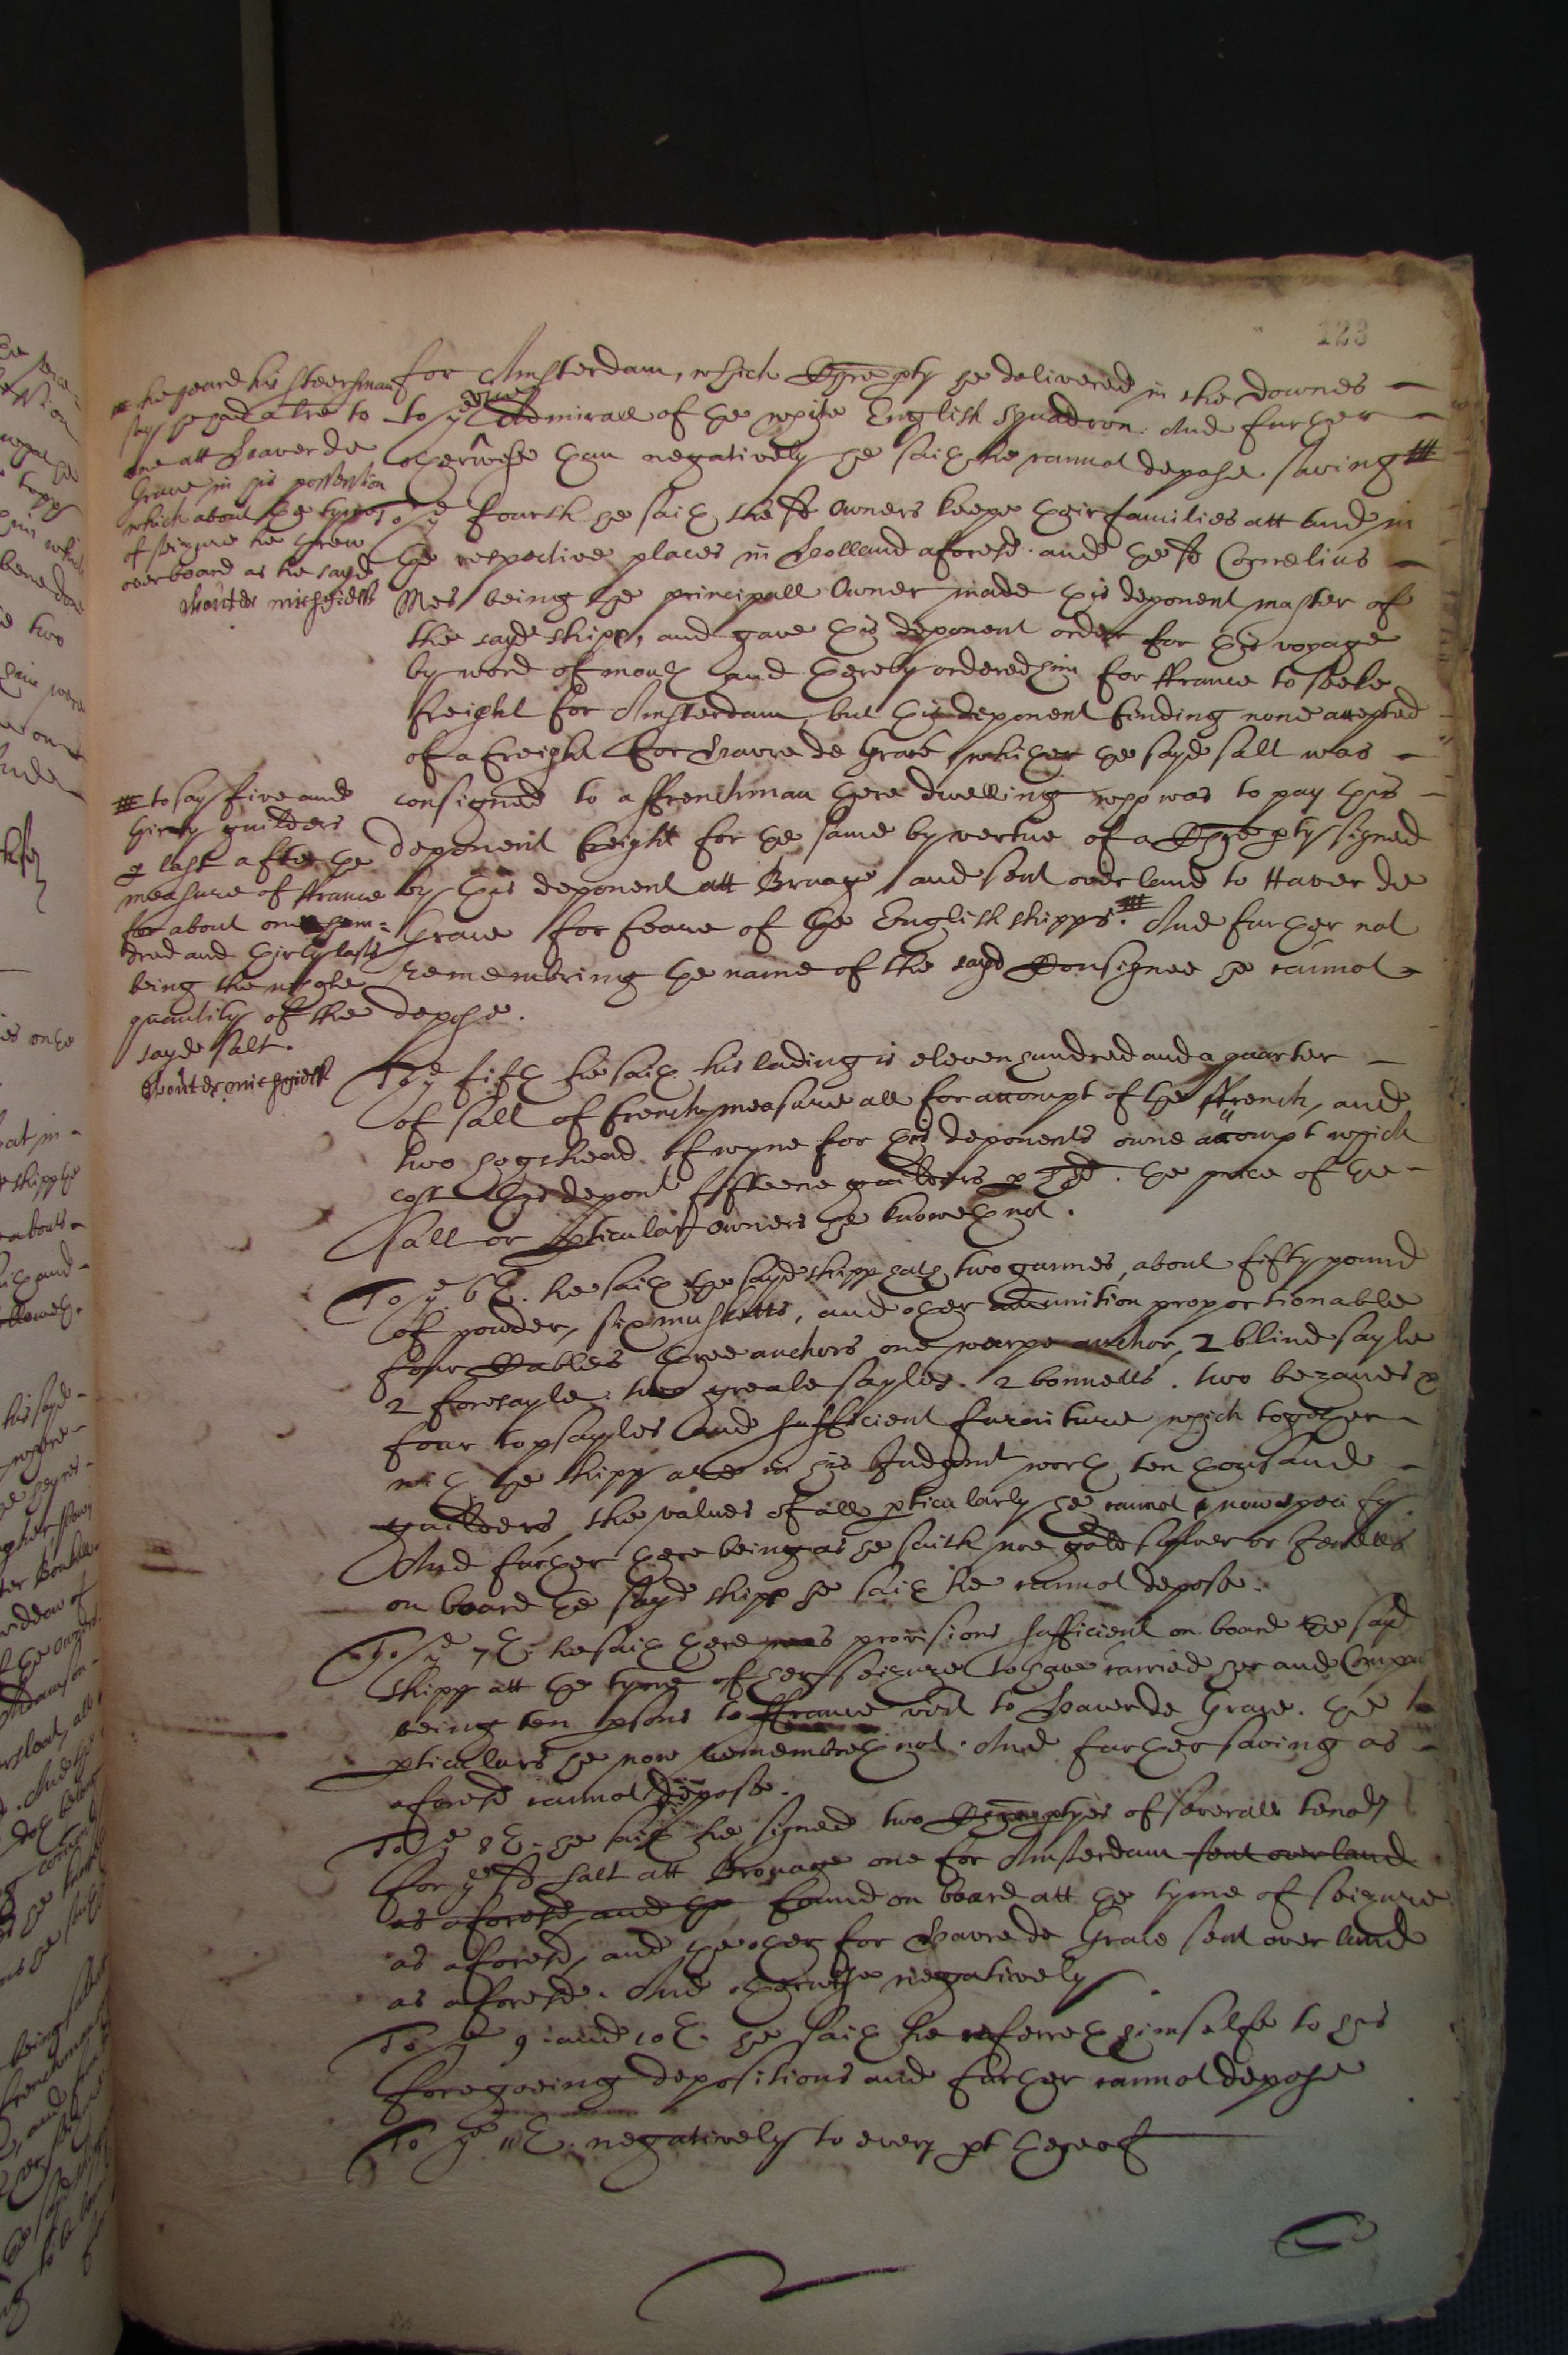 123
for Amsterdam, which Chre pty he delivered in the Downes
to ye Admirall of the white English squadron. And further
otherwise than negatively he saith he cannot depose. saving #
# he heard his steersman
say he had a tre to
one att Haver de
Grace in his possession
which about the tyme
of seizure he threw
overboard as he sayd
Wouter
To ye fourth he saith the sd Owners keepe their families att and in
the respective places in Holland aforesd. and the sd Cornelius
Mes being the principall Owner made this deponent master of
the sayd shipp, and gave this deponent order for this voyage
by word of mouth and thereby ordered him for ffrance to seeke
freight for Amsterdam, but this deponent finding none accepted
of a freight for Havre de Grace, whither the sayd salt was
consigned to a ffrenchman there dwelling who was to pay this
deponent freight for the same by vertue of a Chre pty signed
by this deponent att Bruage and sent over land to Haver de
Grace for feare of the English shipps. # And further not
remembring the name of the sayd Consignee he cannot
depose.
# to say five and
thirty guilders
p last after the
measure of ffrance
for about one hun=
dred and thirty lasts
being the whole
quantity of the
sayd salt.
Wouter
To ye fifth he saith his lading is eleven hundred and a quarter
of salt of french measure all for accompt of the ffrench, and
two hogshead of wyne for this deponents owne accompt which
cost this depont fifteene guilders p hhd. the price of the
salt or pticular owners he knoweth not.
To ye 6th. he saith the sayd shipp hath two gunnes, about fifty pound
of powder, six musketts, and other amunition proportionable
four Cables three anchors one warpe anchor, 2 blind sayle
2 foresayle. two greate sayles. 2 bonnetts. two bezanes &
four topsayles and sufficient furniture which together
with the shipp are in his Judgmt worth ten thousand
guilders, the values of all pticularly he cannot now specify
And further there being as he saith noe gold silver or Jewells
on board the sayd shipp he saith he cannot depose.
To ye 7th. he saith there was provisions sufficient on board the sayd
shipp att the tyme of her seizure to have carried her and Compa
being ten psons to ffrance vizt to Haver de Grace. the
pticulars he now remembreth not. And further saving as
aforesd cannot depose.
To ye 8th. he saith he signed two Chre ptyes of severall tenors
for ye sd salt att Brouage one for Amsterdam sent over land
as aforesd and the found on board att the tyme of seizure
as aforesd, and the other for Havre de Grace sent over land
as aforesd. And otherwise negatively.
To ye 9. and 10th. he saith he referreth himselfe to his
foregoeing depositions and further cannot depose
To ye 11th. negatively to every pt thereof